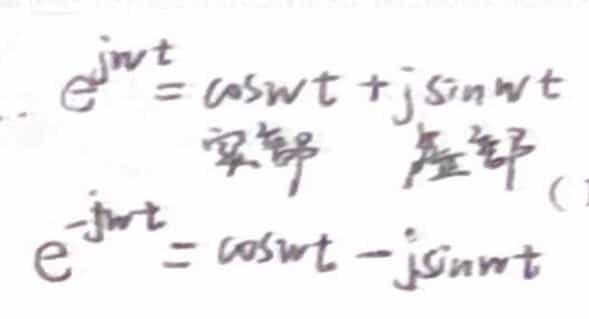 e^{jwt} = coswt + jsinwt
实部 虚部
e^{-jwt} = coswt - jsinwt